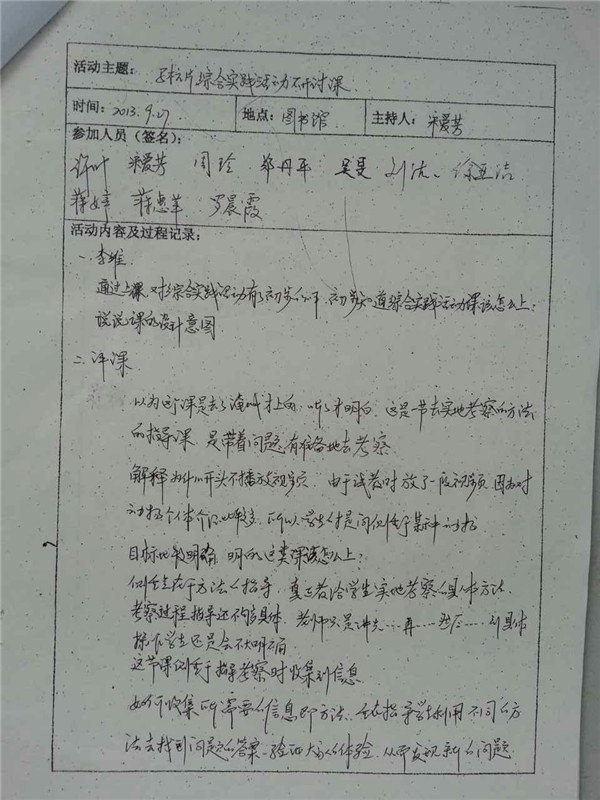 活动主题: 片综合实践活动研讨课
时间: 2013.9.27 地点: 图书馆 主持人: 宋爱芳
参加人员(签名):
许叶 宋爱芳 周玲 郑丹平 吴曼 刘洁 徐亚洁
蒋女幸 蒋惠萍 罗晨霞
活动内容及过程记录:
一、李维
通过上课,对综合实践活动有了初步的了解,初步知道综合实践活动课该怎么上;
说说课的设计意图
二、评课
以为这节课是去了淹城才上的,听了才明白,这是一节去实地考察的方法
的指导课,是带着问题有准备地去考察
解释为什么开头不播放视频,由于试教时放了一段视频,因为对
个体介绍比较多,所以学生的提问侧重于某种
目标比较明确,明白这类课该怎么上;
侧重点在于方法的指导,真正教给学生实地考察的具体方法。
考察过程指导还不够具体,老师只是讲先……再……然后……到具体
操作学生还是会不大明确
这节课侧重于指导考察时收集到信息
如何收集所需要的信息即方法,重在指导学生利用不同的方
法去找到问题的答案,验证大家的体验,从而发现新的问题